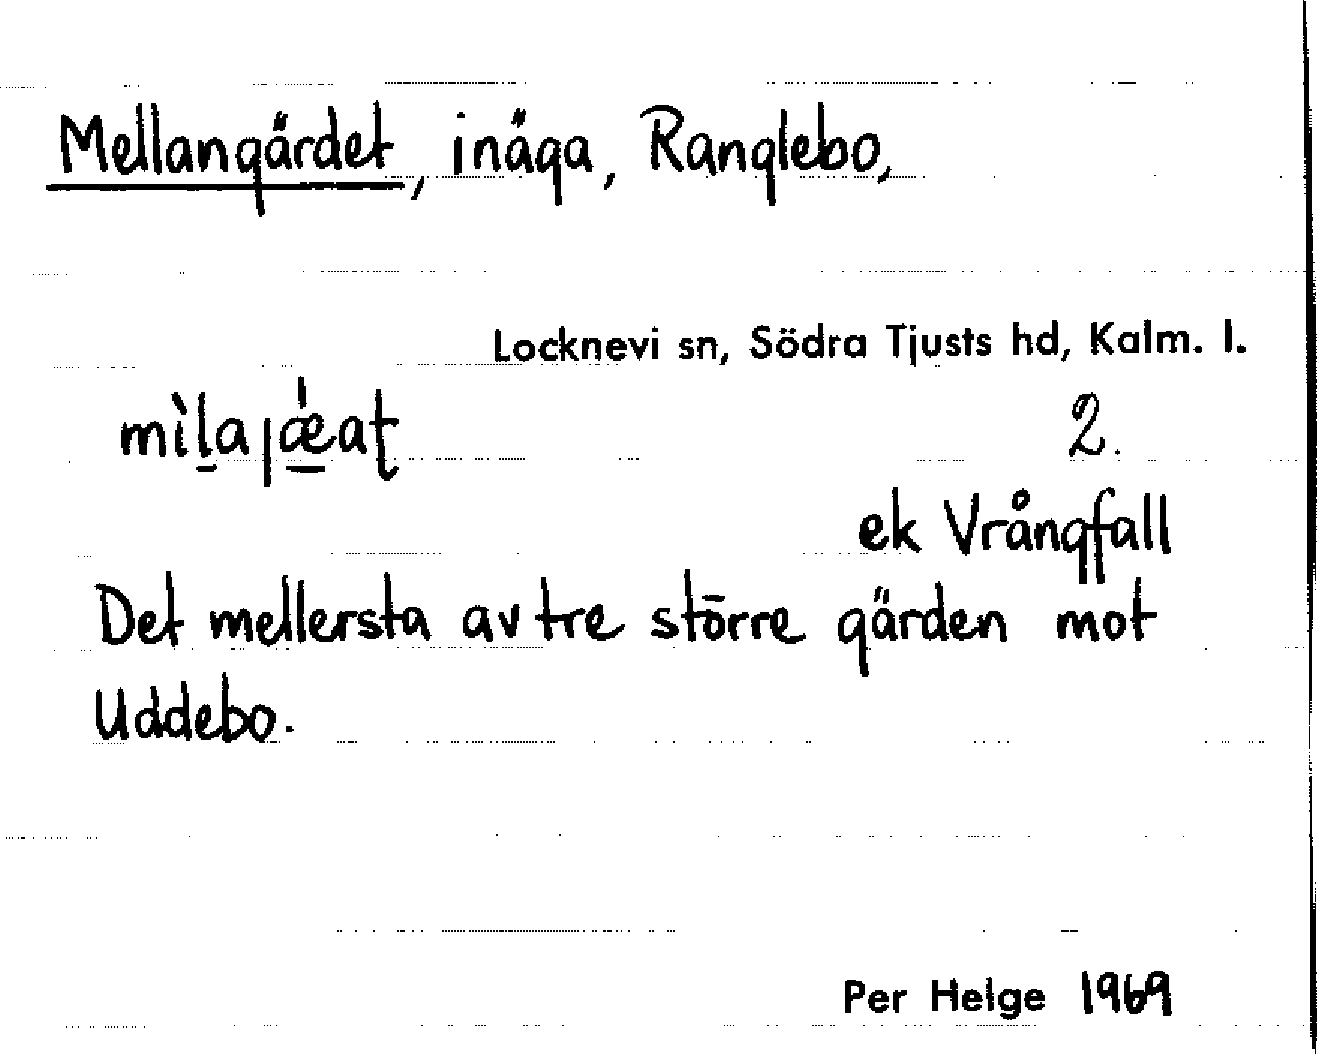 Mellangärdet, inäga, Ranglebo,
Locknevi sn, Södra Tjusts hd, Kalm. l.
2.
ek Vrångfall
Det mellersta av tre större gärden mot
Uddebo.
Per Helge 1969